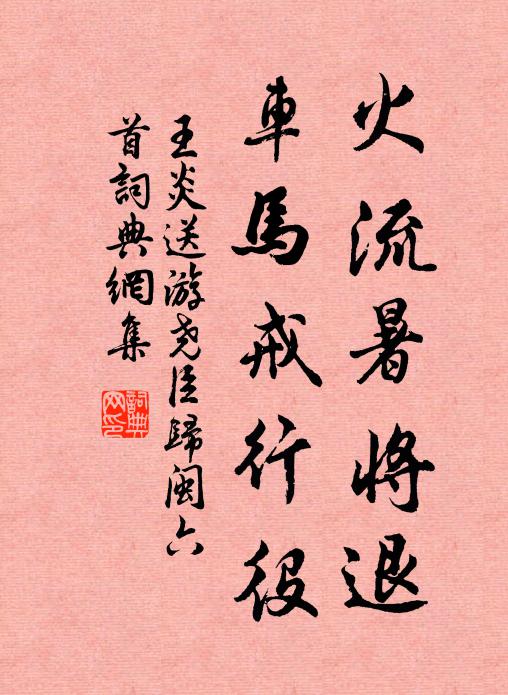 火流暑將退
車馬戒行役
王炎送游尧臣歸閩六
首詞典網集
詞典
网印